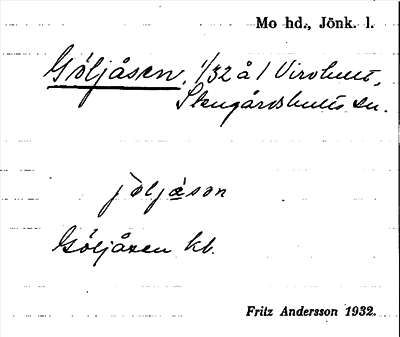 Mo hd., Jönk. l.
Göljåsen, 1/32 å 1 Virohult,
Stengårdshults sn.
jöljåsən
Göljåsen kb.
Fritz Andersson 1932.